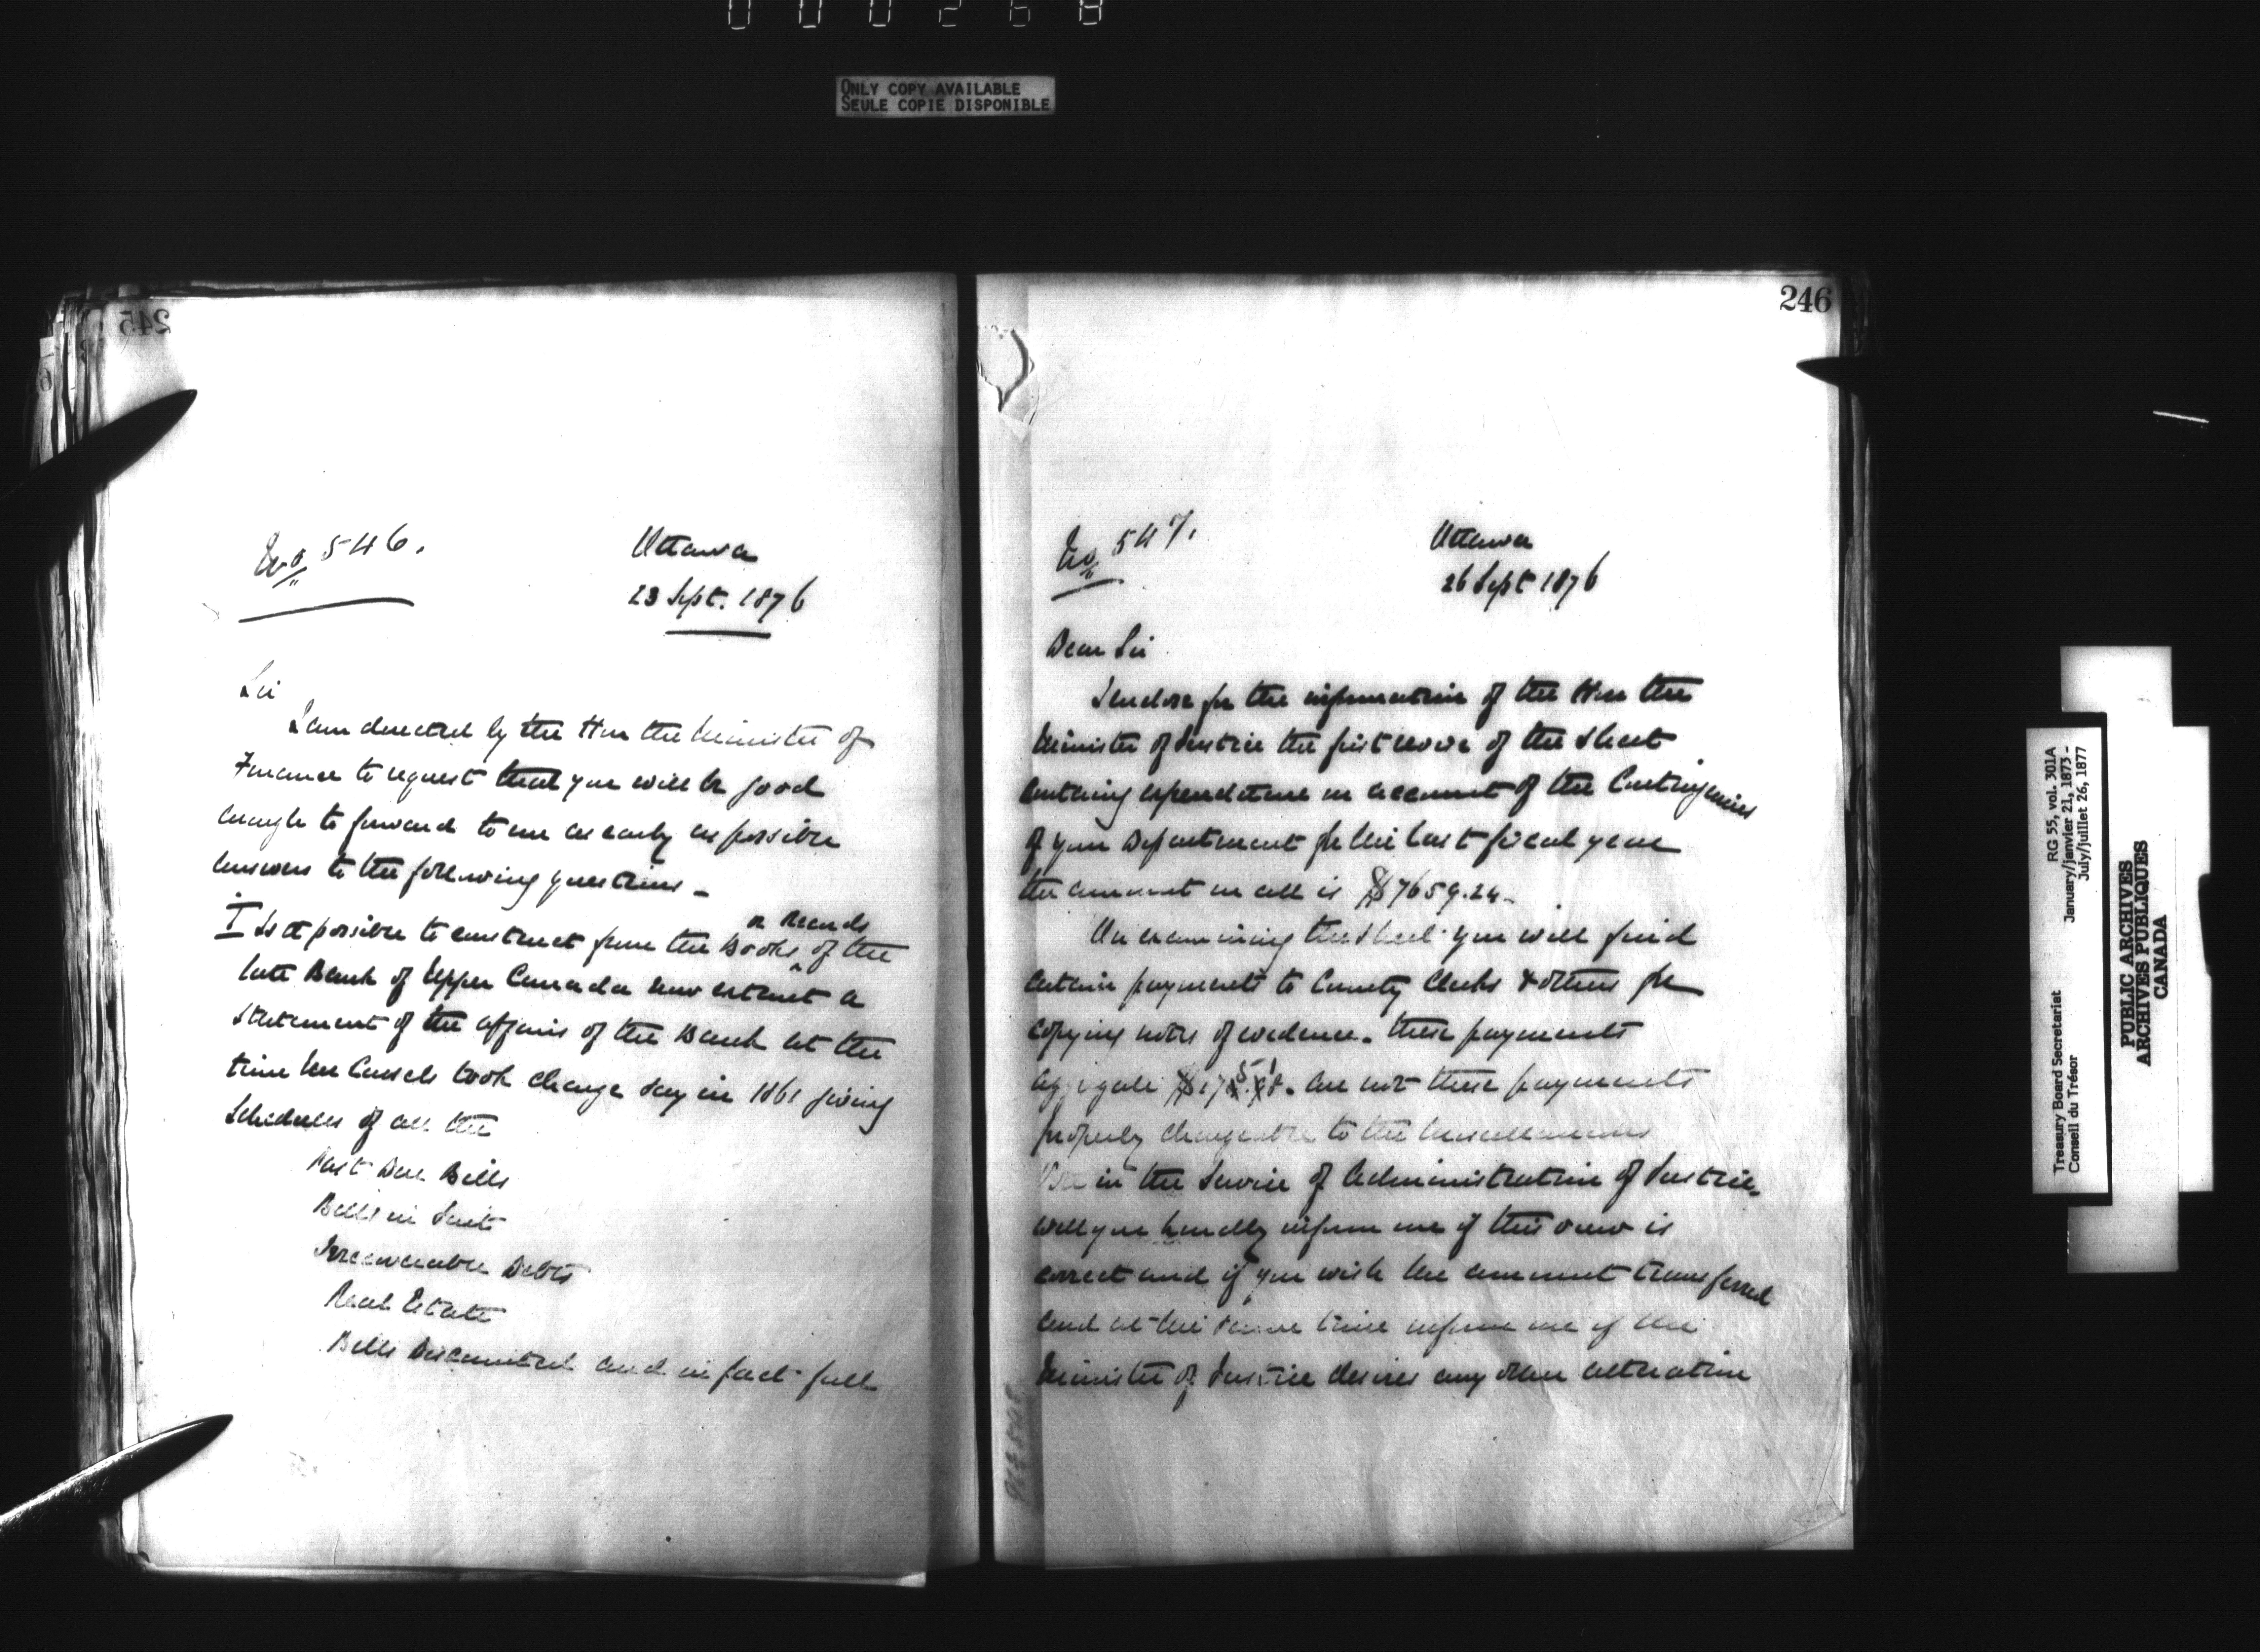 000268
ONLY COPY AVAILABLE
SEULE COPIE DISPONIBLE
245
No 546.
Ottawa
23 Sept. 1876
Sir
I am directed by the Hon the Minister of
Finance to request that you will be good
enough to forward to me as early as possible
answers to the following questions -
I Is it possible to construct from the Books or Records of the
late Bank of Upper Canada now extant a
Statement of the affairs of the Bank at the
time Mr Cassels took charge say in 1861 giving
Schedules of all the
Past Due Bills
Bills in Suit
Irrecoverable Debts
Real Estate
Bills Discounted and in fact full
246
No 547.
Ottawa
26 Sept 1876
Dear Sir
I enclose for the information of the Hon the
Minister of Justice the first of the sheet
containing expenditure on account of the Contingencies
of your Department for the last fiscal year
the amount in all is $7659.24-
On examining the sheet you will find
certain payments to County Clerks & others for
copying notes of evidence. these payments
aggregate are not these payments
properly chargeable to the Miscellaneous
in the Service of Administration of Justice.
will you kindly inform me if this view is
correct and if you wish the amount transferred
and at the same time inform me if the
Minister of Justice desires any other alteration
Treasury Board Secretariat
Conseil du Trésor
RG 55, vol. 301A
January/janvier 21, 1873 -
July/juillet 26, 1877
PUBLIC ARCHIVES
ARCHIVES PUBLIQUES
CANADA